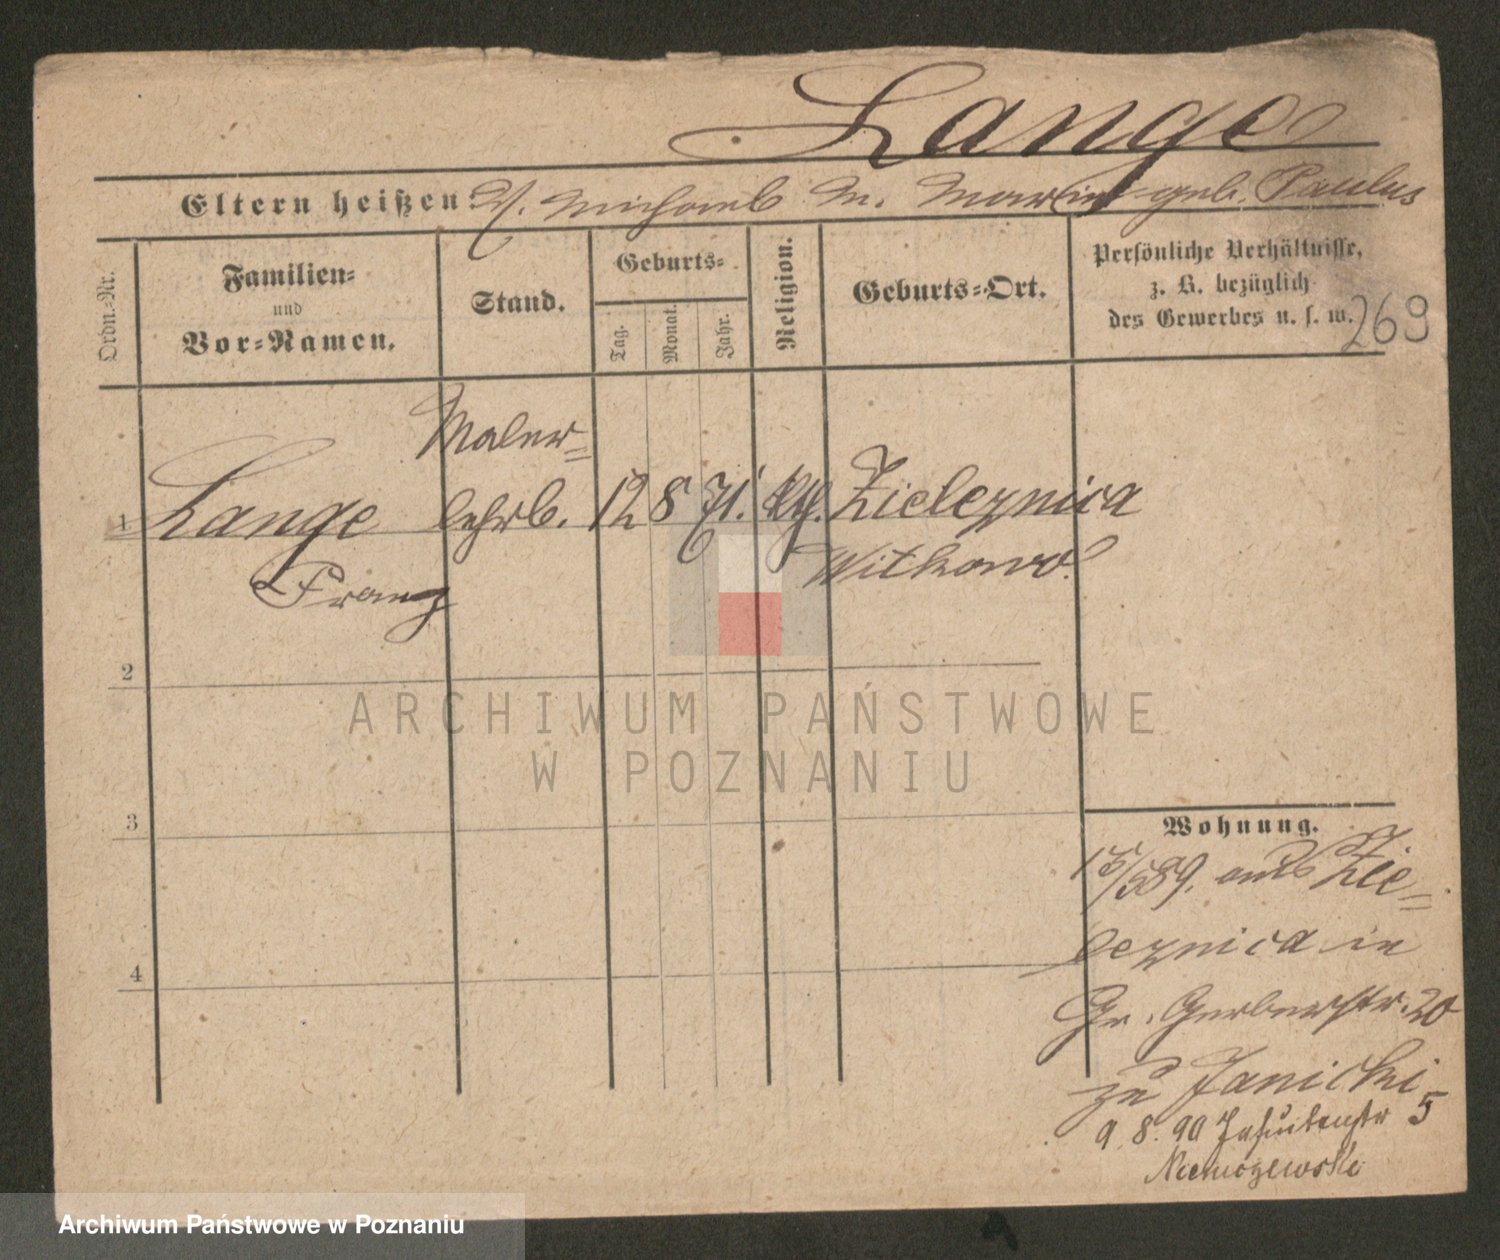 Lange
Eltern heißen: V. Michael M. Marie geb. Paulus
Ordn.-Nr.
Familien-
und
Vor-Namen.
Stand.
Geburts-
Tag.
Monat.
Jahr.
Religion.
Geburts-Ort.
Persönliche Verhältnisse,
z. B. bezüglich
des Gewerbes u. s. w.
269
Maler=
1 Lange lehrl. 12 8 71. kth. Zieleznica
Franz Witkowo.
2
ARCHIWUM PAŃSTWOWE
W POZNANIU
3
Wohnung.
15/589. aus Zie=
leznica in
4
Gr. Gerberstr. 20
zu Janicki
9. 8. 90 Jesuitenstr 5
Archiwum Państwowe w Poznaniu